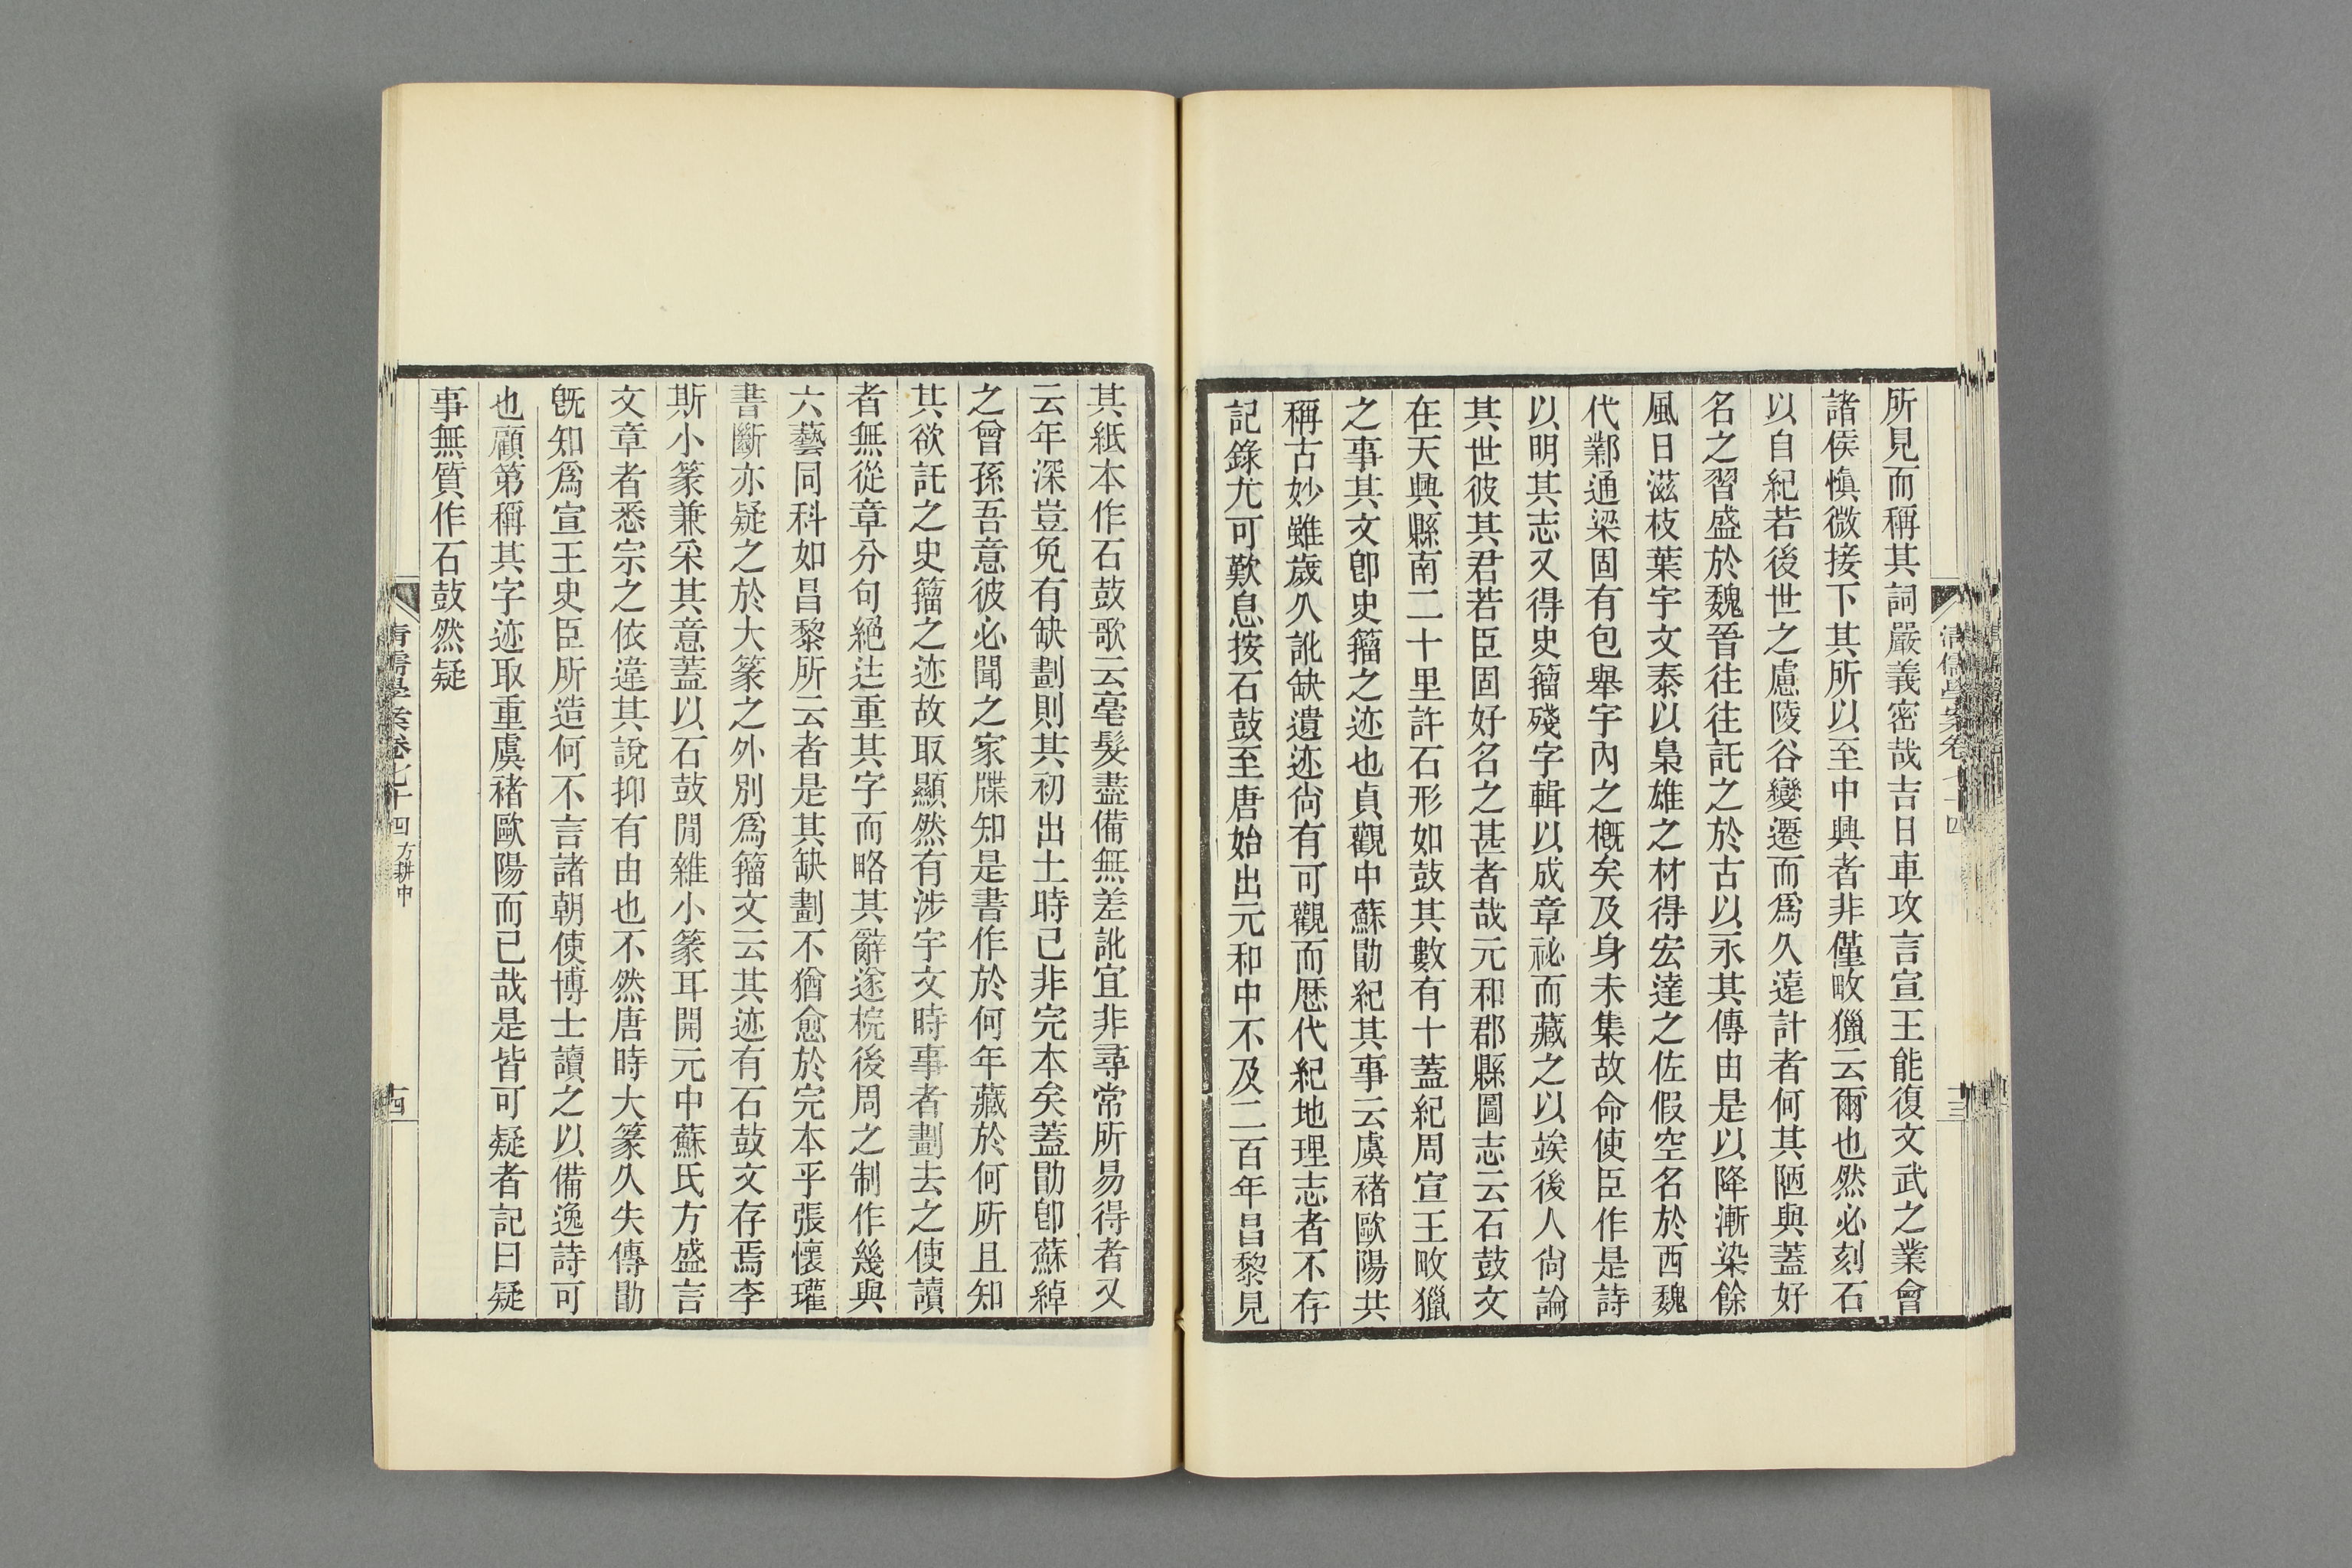 所見而稱其詞嚴義密哉吉日車攻言宣王能復文武之業會
諸侯愼微接下其所以至中興者非僅畋獵云爾也然必刻石
以自紀若後世之慮陵谷變遷而爲久遠計者何其陋與蓋好
名之習盛於魏晉往往託之於古以永其傳由是以降漸染餘
風日滋枝葉宇文泰以梟雄之材得宏達之佐假空名於西魏
代鄴通梁固有包舉宇內之槪矣及身未集故命使臣作是詩
以明其志又得史籀殘字輯以成章祕而藏之以竢後人尙論
其世彼其君若臣固好名之甚者哉元和郡縣圖志云石鼓文
在天興縣南二十里許石形如鼓其數有十蓋紀周宣王畋獵
之事其文卽史籀之迹也貞觀中蘇勖紀其事云虞褚歐陽共
稱古妙雖歲久訛缺遺迹尙有可觀而厯代紀地理志者不存
記錄尤可歎息按石鼓至唐始出元和中不及二百年昌黎見
清儒學案卷七十四
十三
其紙本作石鼓歌云毫髮盡備無差訛宜非尋常所易得者又
云年深豈免有缺劃則其初出土時已非完本矣蓋勖卽蘇綽
之曾孫吾意彼必聞之家牒知是書作於何年藏於何所且知
其欲託之史籀之迹故取顯然有涉宇文時事者劃去之使讀
者無從章分句絕迬重其字而略其辭遂梡後周之制作幾與
六藝同科如昌黎所云者是其缺劃不猶愈於完本乎張懷瓘
書斷亦疑之於大篆之外別爲籀文云其迹有石鼓文存焉李
斯小篆兼采其意蓋以石鼓閒雜小篆耳開元中蘇氏方盛言
文章者悉宗之依違其說抑有由也不然唐時大篆久失傳勖
旣知爲宣王史臣所造何不言諸朝使博士讀之以備逸詩可
也顧第稱其字迹取重虞褚歐陽而已哉是皆可疑者記曰疑
事無質作石鼓然疑
清儒學案卷七十四 方耕中
十四